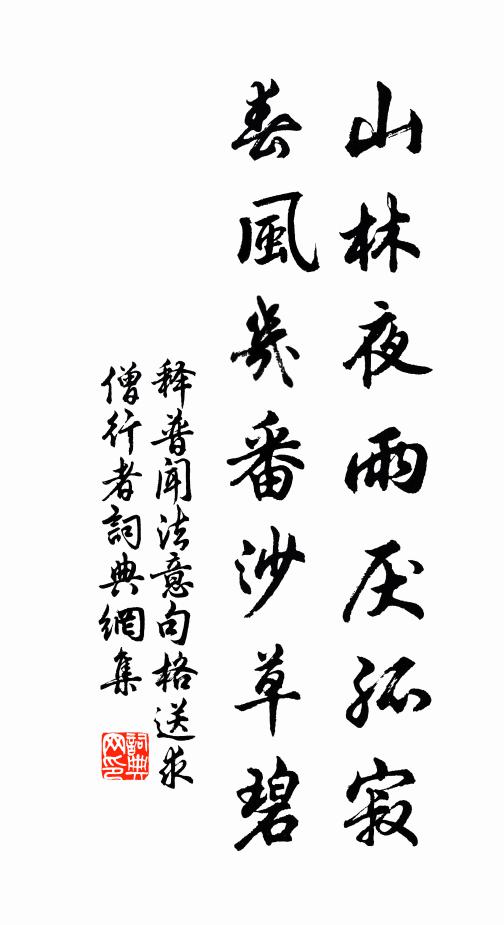 山林夜雨厌孤寂
春風幾番沙草碧
释普闻法意句格送求
僧行者詞典網集
詞典网印